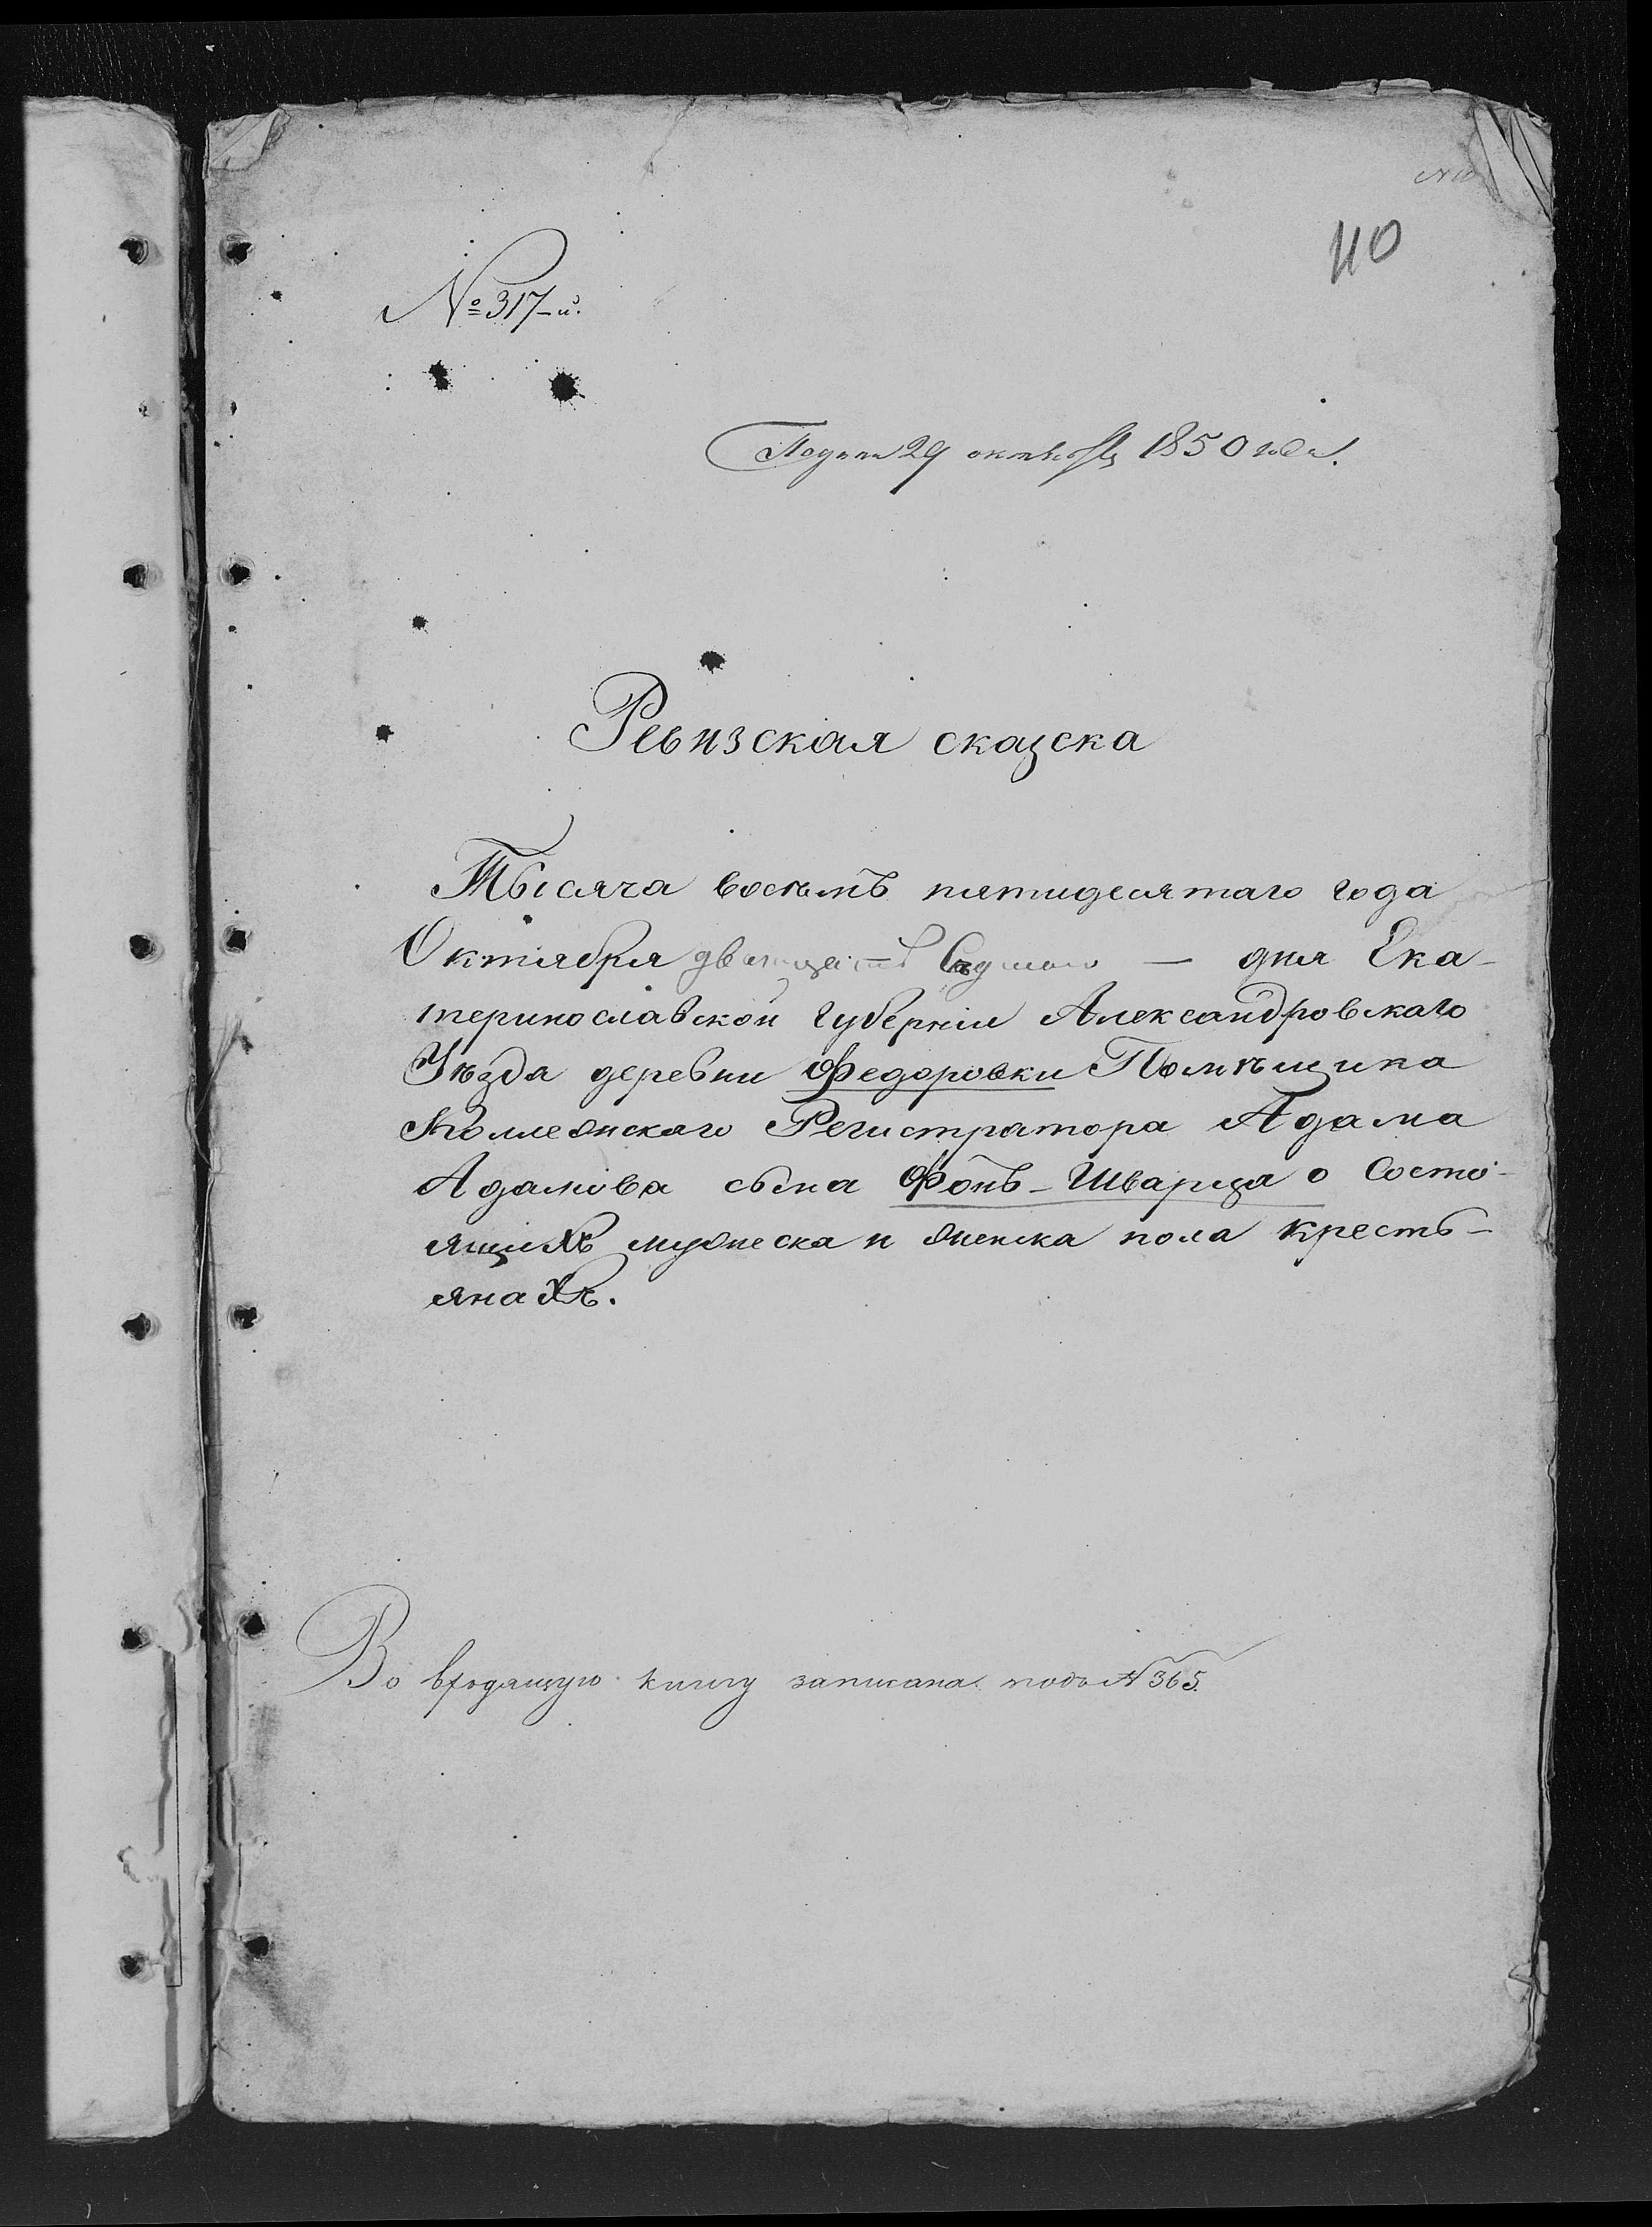 110
№ 317-й.
Подана 29 октября 1850 года.
Ревизская сказска
Тысяча восемъ пятидесятаго года
Октября двадцать Седмого — дня Ека-
теринославской Губерніи Александровскаго
Уѣзда деревни Федоровки Помѣщика
Коллежскаго Регистратора Адама
Адамова сына Фонъ-Шварца о Состо-
ящихъ мужеска и женска пола кресть-
янахъ.
Во входящую книгу записана подъ № 365.